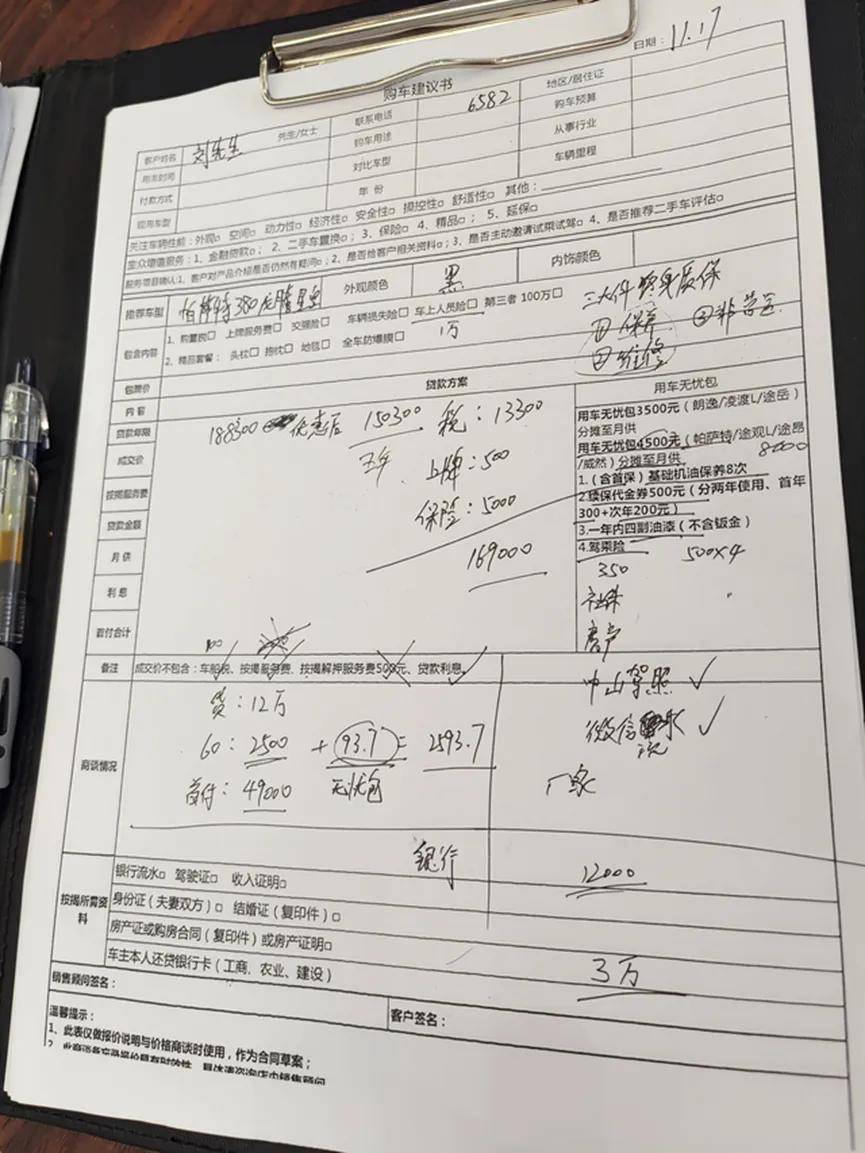 日期：11.17
购车建议书
客户姓名 刘先生 先生/女士 联系电话 6582 地区/居住证
用车时间 购车用途 购车预算
付款方式 对比车型 从事行业
现用车型 年 份 车辆里程
关注车辆性能：外观□ 空间□ 动力性□ 经济性□ 安全性□ 操控性□ 舒适性□ 其他：
至众增值服务：1、金融贷款□； 2、二手车置换□； 3、保险□ 4、精品□； 5、延保□
服务项目确认:1、客户对产品介绍是否仍然有疑问□；2、是否给客户相关资料□；3、是否主动邀请试乘试驾□ 4、是否推荐二手车评估□
推荐车型 帕萨特380龙腾星空 外观颜色 黑 内饰颜色
包含内容 1、购置税□ 上牌服务费□ 交强险□ 车辆损失险□ 车上人员险□ 第三者100万□
1万
2、精品套餐： 头枕□ 抱枕□ 地毯□ 全车防爆膜□
三大件终身质保
①保养 ③非营运
②维修
包牌价 贷款方案 用车无忧包
内 容
贷款年限
成交价
按揭服务费
贷款金额
月 供
利 息
首付合计
188300 优惠后 150300 税：13300
五年 上牌：500
保险：5000
169000
用车无忧包3500元（朗逸/凌渡L/途岳）
分摊至月供
用车无忧包4500元（帕萨特/途观L/途昂
/威然）分摊至月供
8000
1.（含首保）基础机油保养8次
2.续保代金券500元（分两年使用、首年
300+次年200元）
3.一年内四副油漆（不含钣金）
4.驾乘险
350 500×4
社保
房产
备注 成交价不包含：车船税、按揭服务费、按揭解押服务费500元、贷款利息。
商谈情况
贷：12万
60：2500 + 93.7 = 2593.7
首付：49000 无忧包
中山驾照 ✓
微信流水 ✓
厂家
银行
12000
3万
按揭所需资料
银行流水□ 驾驶证□ 收入证明□
身份证（夫妻双方）□ 结婚证（复印件）□
房产证或购房合同（复印件）或房产证明□
车主本人还贷银行卡（工商、农业、建设）
销售顾问签名： 客户签名：
温馨提示：
1、此表仅做报价说明与价格商谈时使用，作为合同草案；